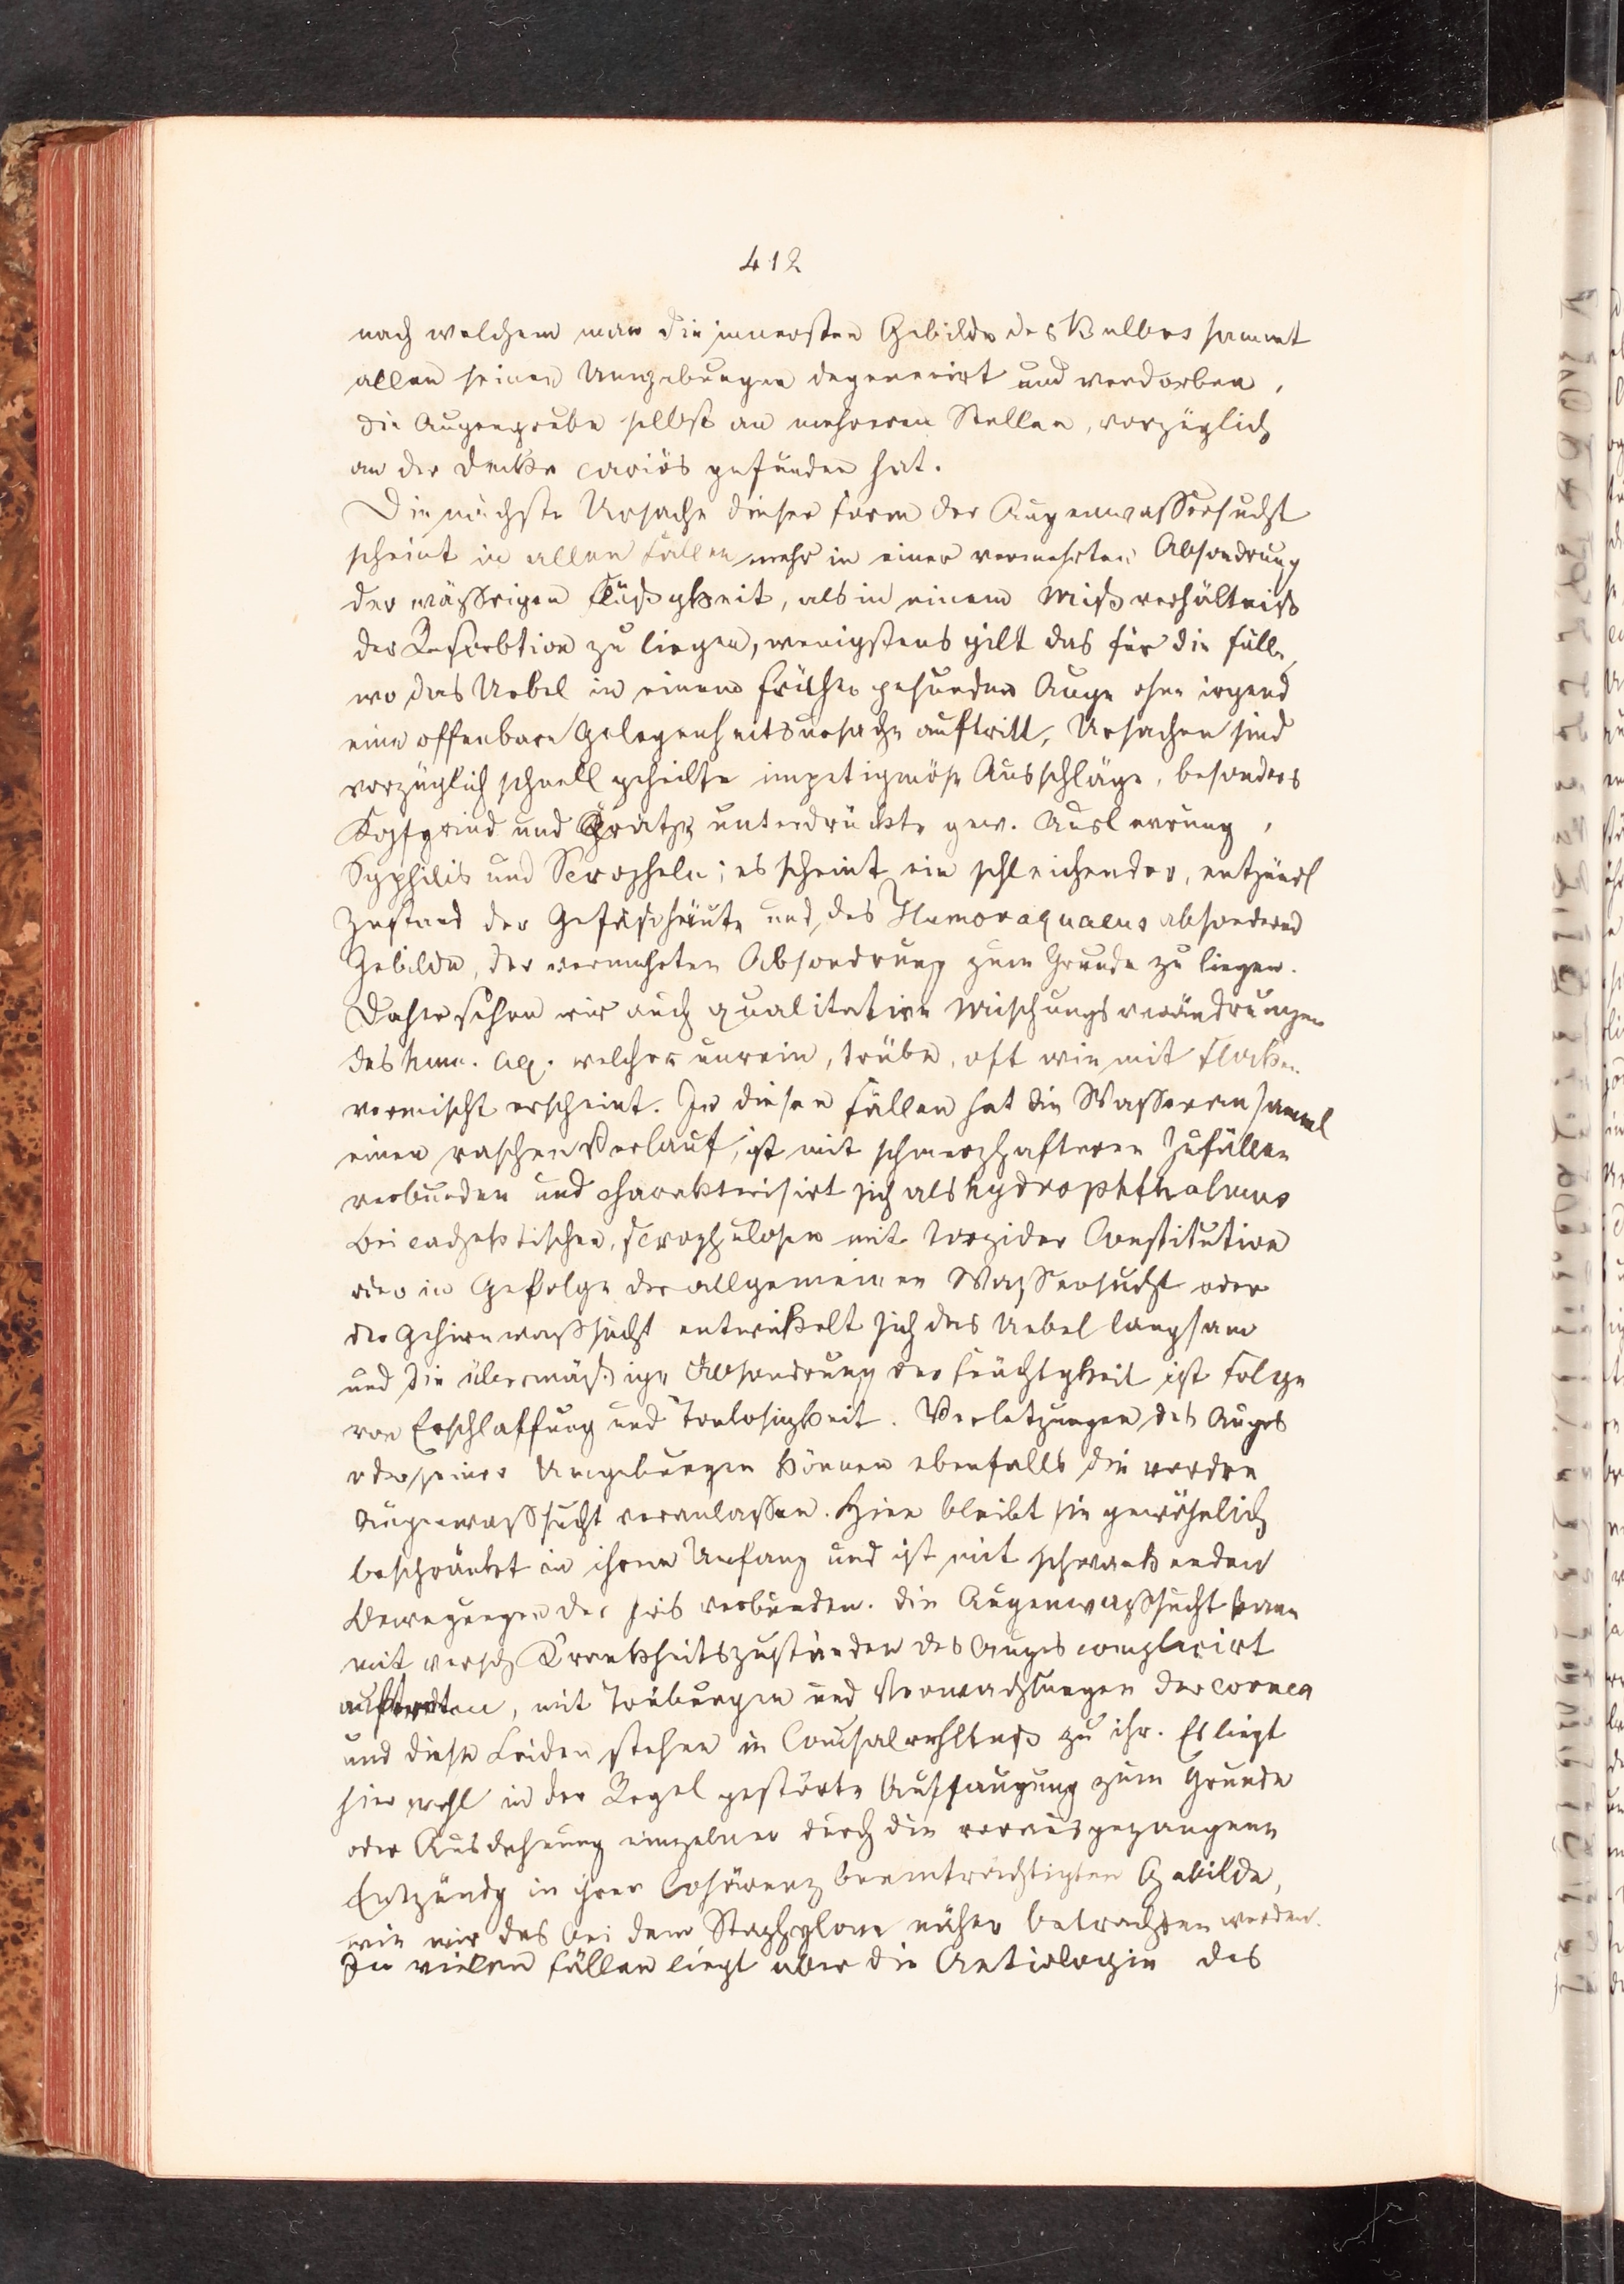 412
nach welchem man die innersten Gebilde des Bulbus sammt
allen seinen Umgebungen degenerirt und verdorben,
die Augengrube selbst an mehreren Stellen, vorzüglich
an der Decke cariös gefunden hat.
Die nächste Ursache dieser Form der Augenwassersucht
scheint in allen Fällen mehr in einer vermehrten Absondrung
der wäßrigen Flüßigkeit, als in einem Mißverhältniß
der Resorbtion zu liegen, wenigstens gilt das für die Fälle,
wo das Uebel in einem früher gesunden Auge ohne irgend
eine offenbare Gelegenheitsursache auftritt. Ursachen sind
vorzüglich schnell geheilte impetiginöse Ausschläge, besonders
Kopfgrind und Krätze unterdrückte gew. Ausleerung,
Syphilis und Scropheln; es scheint ein schleichender, entzündl
Zustand der Gefäshäute und des Humor aquaeus absondernd
Gebilde, der vermehrten Absondrung zum Grunde zu liegen.
Daher sehen wir auch qualitative Mischungsverändrungen
des hum. aq. welcher unrein, trübe, oft wie mit Flocken
vermischt erscheint. In diesen Fällen hat die Wasseransamml
einen raschen Verlauf, ist mit schmerzhafteren Zufällen
verbunden und charakterisirt sich als hydrophthalmus
bei cachektischen, scrophulosen mit torpider Constitution
oder in Gefolge der allgemeinen Wassersucht oder
der Gehirnwaßsucht entwickelt sich das Uebel langsam
und die übermäßige Absondrung der Feuchtgkeit ist Folge
von Erschlaffung und Tonlosigkeit. Verletzungen des Auges
oder seiner Umgebungen können ebenfalls die vordre
Augenwaßsucht veranlaßen. Hier bleibt sie gewöhnlich
beschränkt in ihrem Umfang und ist mit schwankenden
Bewegungen der Iris verbunden. Die Augenwaßsucht kann
mit versch Krankheitszuständen des Auges complicirt
auftreten, mit Trübungen und Verwachsungen der cornea
und diese Leiden stehen in Causalverhltniß zu ihr. Es liegt
hier wohl in der Regel gestörte Aufsaugung zum Grunde
oder Ausdehnung einzelner durch die vorausgegangene
Entzündg in ihrer Cohärenz beeinträchtigten Gebilde,
wie wir das bei dem Staphylom näher betrachten werden.
In vielen Fällen liegt aber die Aetiologie des